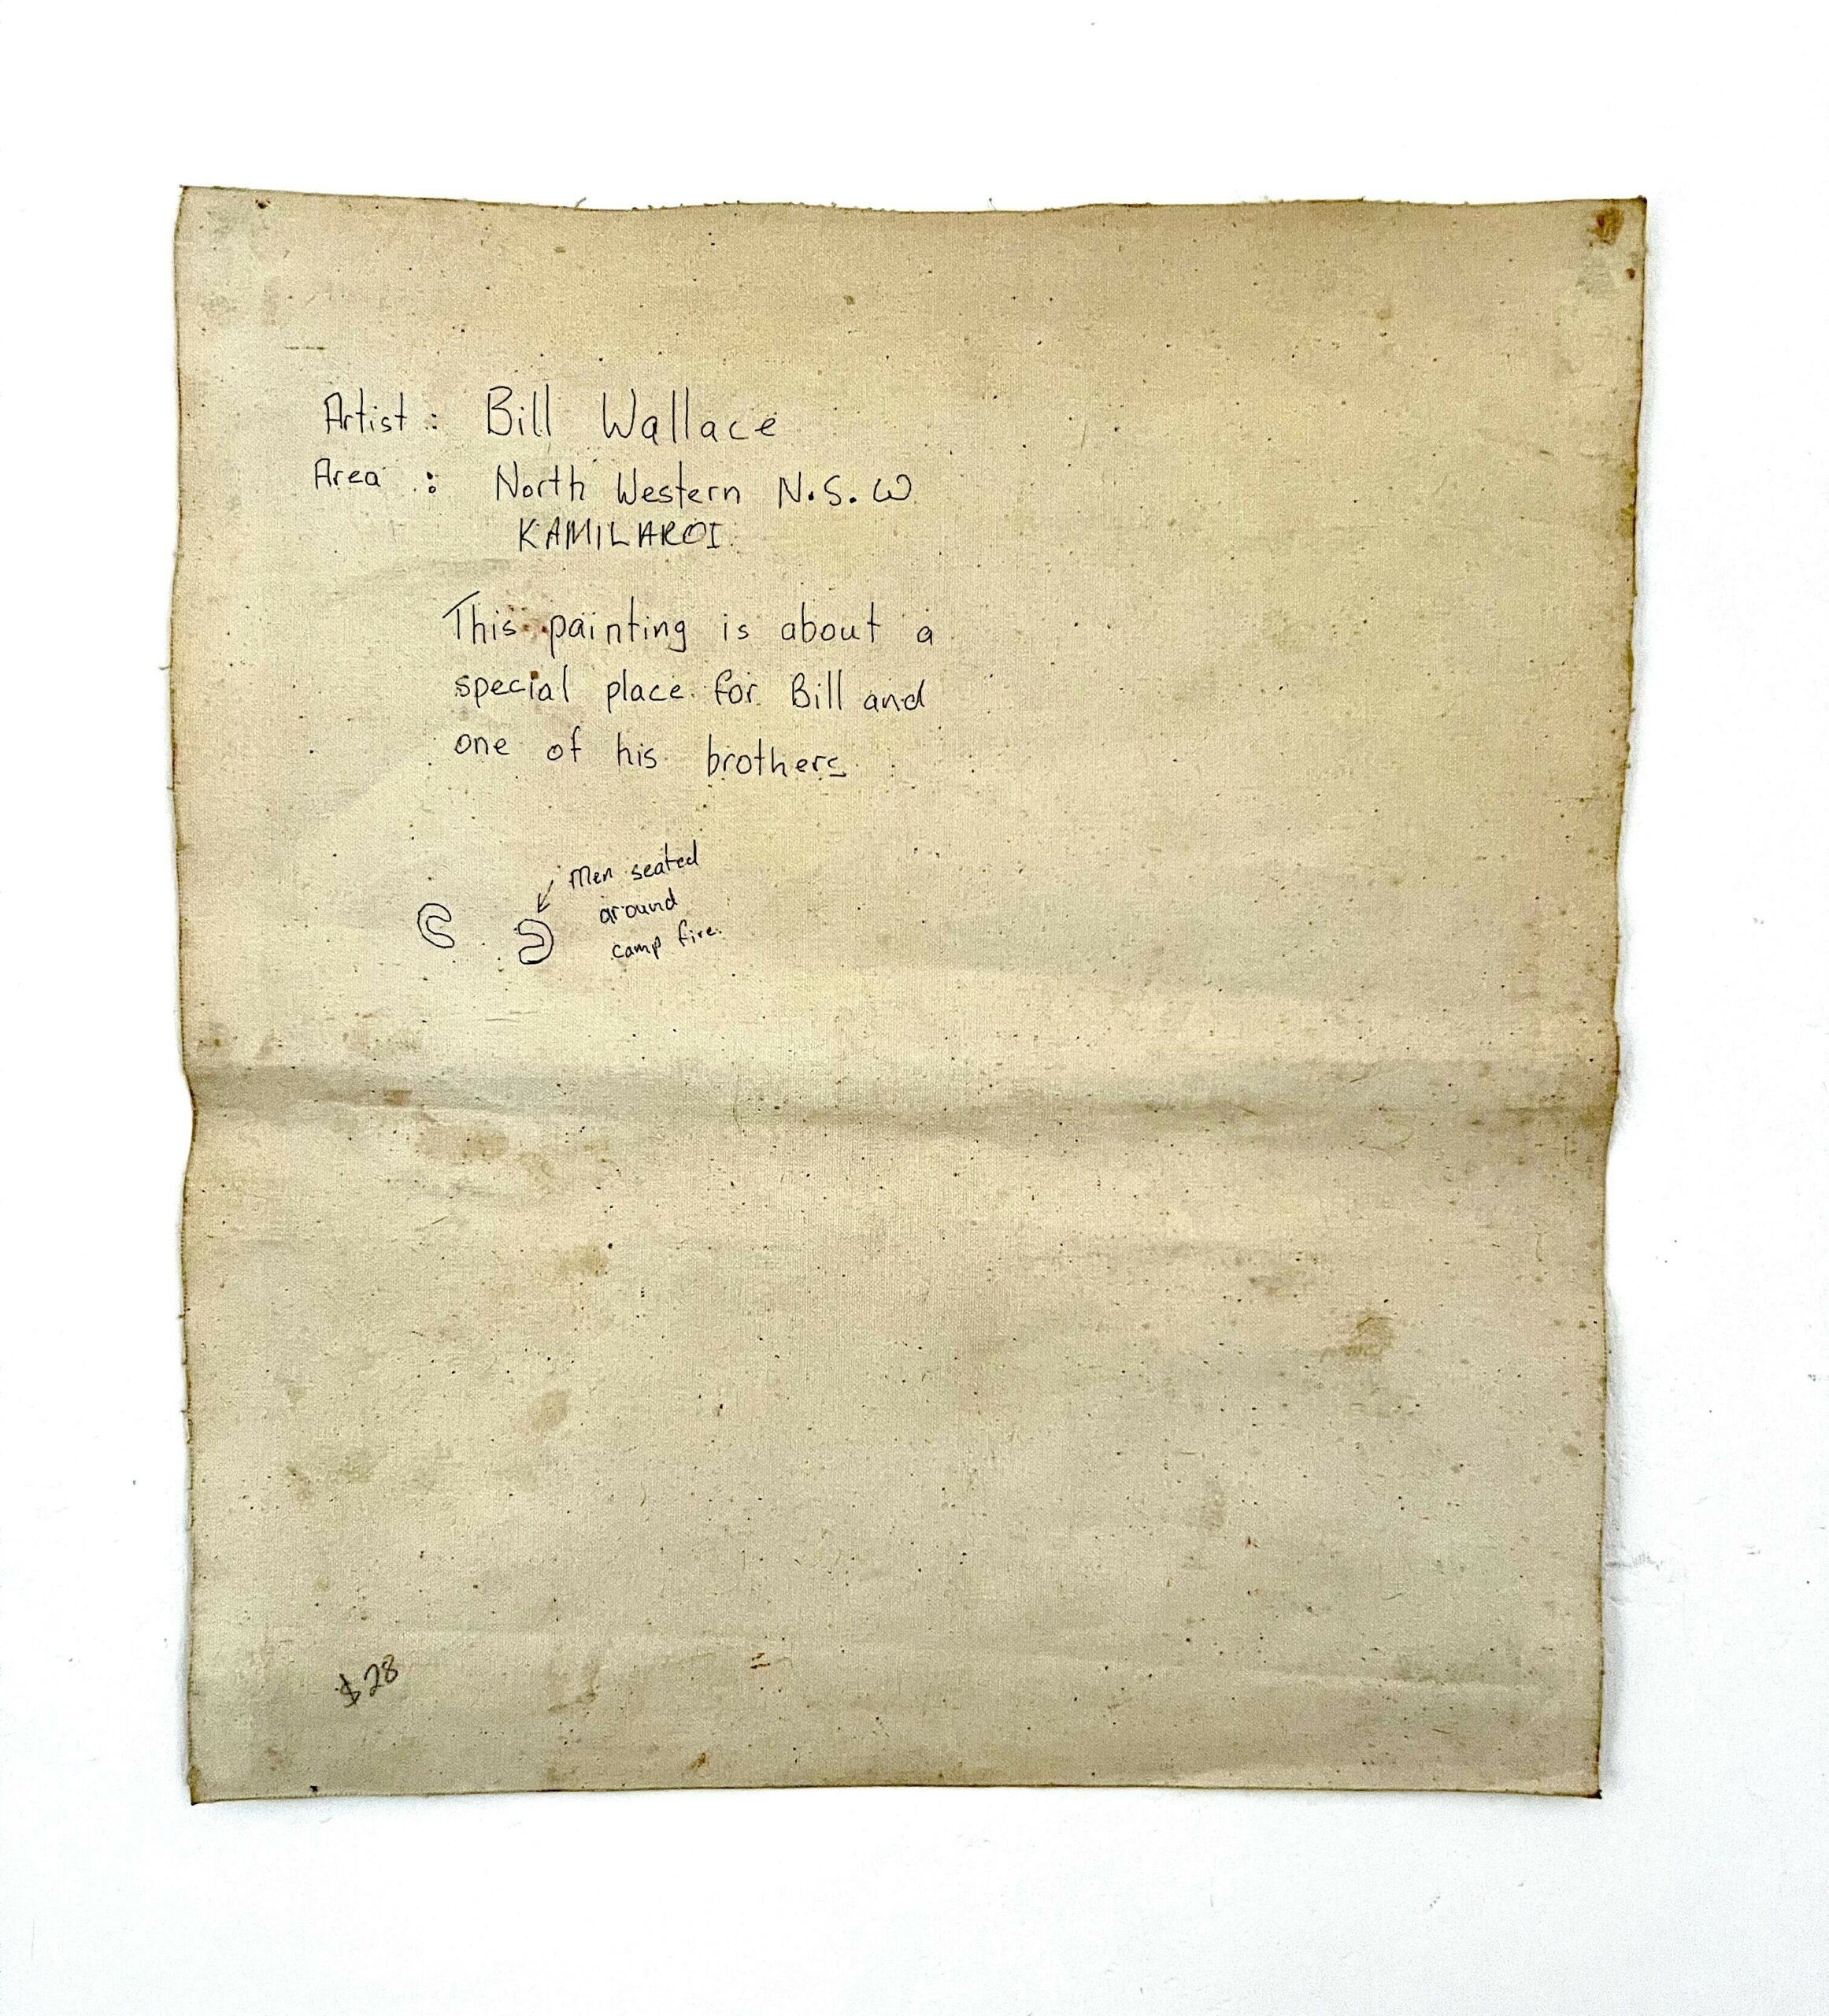 Artist : Bill Wallace
Area : North Western N.S.W
KAMILAROI
This painting is about a
special place for Bill and
one of his brothers
Men seated
around
camp fire.
$28